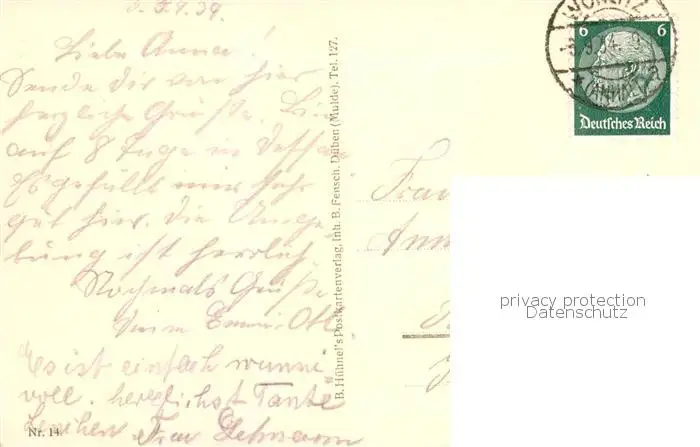 5.4.39
Liebe Anna!
Sende dir von hier
herzliche Grüße. Bin
auf 8 Tage in Dessau
Es gefällt mir sehr
gut hier. die Umge
bung ist herrlich.
Nochmals Grüße
Emmi
Es ist einfach wunder
voll. herzlichst Tante
Lenchen Frau Lehmann
Nr. 14.
B. Hühnel's Postkartenverlag, Inh. B. Fensch, Düben (Mulde). Tel. 127.
WÖRLITZ
6 6
Deutsches Reich
Frau
privacy protection
Datenschutz